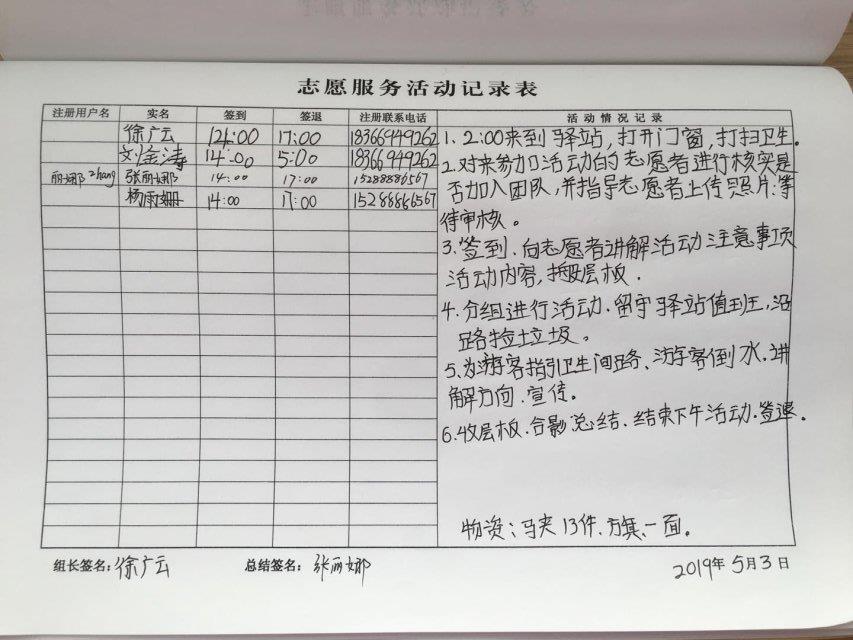 志愿服务活动记录表
注册用户名 实名 签到 签退 注册联系电话 活动情况记录
徐广云 14:00 17:00 18366949262
14:00 5:00 18366949262
丽娜zhang 张丽娜 14:00 17:00 15288886567
杨雨姗 14:00 17:00 15288886567
1. 2:00来到驿站,打开门窗,打扫卫生.
2.对来参加活动的志愿者进行核实是
否加入团队,并指导志愿者上传照片,等
待审核。
3.签到.向志愿者讲解活动注意事项
活动内容,展板.
4.分组进行活动.留守驿站值班,沿
路捡垃圾。
5.为游客指引卫生间路、游客倒水.讲
解方向.宣传。
6.收展板.合影总结、结束下午活动.签退.
物资:马夹13件、旗一面。
组长签名:徐广云 总结签名:张丽娜 2019年5月3日